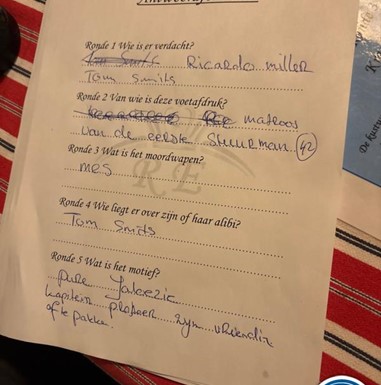 Ronde 1 Wie is er verdacht?
Ricardo miller
Tom Smits
Ronde 2 Van wie is deze voetafdruk?
matroos
van de eerste Stuurman (42)
Ronde 3 Wat is het moordwapen?
mes
RE
Ronde 4 Wie liegt er over zijn of haar alibi?
Tom Smits
Ronde 5 Wat is het motief?
pure Jaloezie
kapitein probeer zijn vriendin
af te pakken.